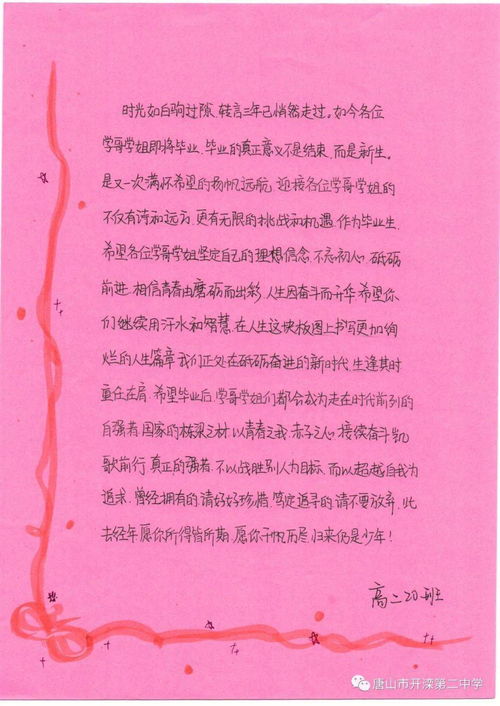 时光如白驹过隙,转言三年已悄然走过。如今各位
学哥学姐即将毕业,毕业的真正意义不是结束,而是新生。
是又一次满怀希望的扬帆远航,迎接各位学哥学姐的
不仅有诗和远方,更有无限的挑战和机遇,作为毕业生,
希望各位学哥学姐坚定自己的理想信念,不忘初心,砥砺
前进,相信青春由磨砺而出彩,人生因奋斗而升华,希望你
们继续用汗水和智慧,在人生这块板图上书写更加绚
烂的人生篇章,我们正处在砥砺奋进的新时代,生逢其时
重任在肩,希望毕业后,学哥学姐们都会成为走在时代前列的
自强者,国家的栋梁之材,以青春之我,赤子之心,接续奋斗,凯
歌前行,真正的强者,不以战胜别人为目标,而以超越自我为
追求,曾经拥有的请好好珍惜,笃定追寻的请不要放弃,此
去经年,愿你所得皆所期,愿你千帆历尽,归来仍是少年!
高二20班
唐山市开滦第二中学